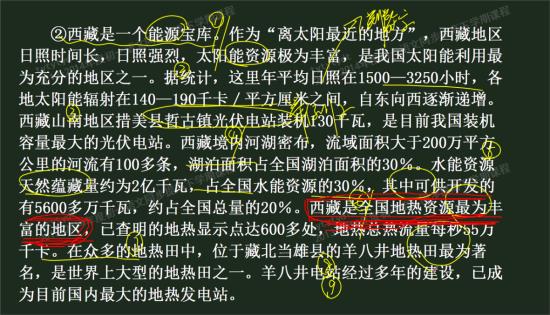 ②西藏是一个能源宝库。作为“离太阳最近的地方”，西藏地区
日照时间长，日照强烈，太阳能资源极为丰富，是我国太阳能利用最
为充分的地区之一。据统计，这里年平均日照在1500—3250小时，各
地太阳能辐射在140—190千卡／平方厘米之间，自东向西逐渐递增。
西藏山南地区措美县哲古镇光伏电站装机130千瓦，是目前我国装机
容量最大的光伏电站。西藏境内河湖密布，流域面积大于200万平方
公里的河流有100多条，湖泊面积占全国湖泊面积的30%。水能资源
天然蕴藏量约为2亿千瓦，占全国水能资源的30%，其中可供开发的
有5600多万千瓦，约占全国总量的20%。西藏是全国地热资源最为丰
富的地区，已查明的地热显示点达600多处，地热总热流量每秒55万
千卡。在众多的地热田中，位于藏北当雄县的羊八井地热田最为著
名，是世界上大型的地热田之一。羊八井电站经过多年的建设，已成
为目前国内最大的地热发电站。